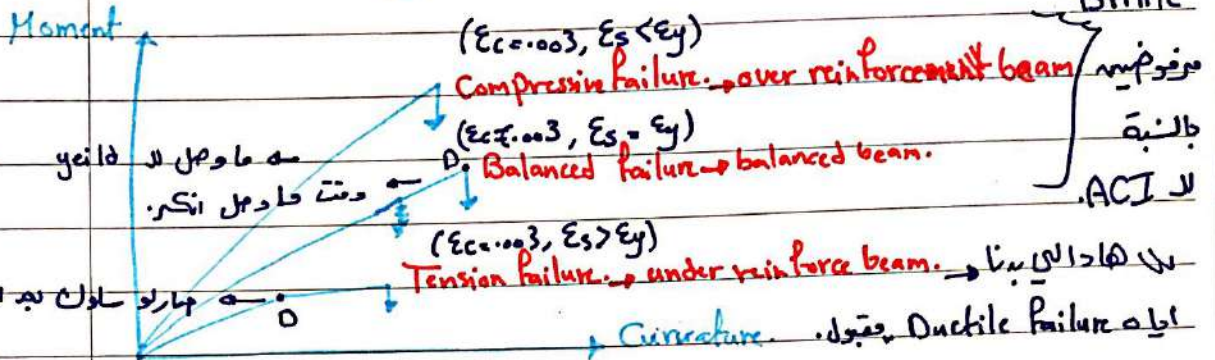 Brittle
Moment
(εc=.003, εs<εy)
Compressive failure. → over reinforcement beam
مرفوضين
بالنسبة
لل ACI.
(εc=.003, εs = εy)
D. Balanced failure → balanced beam.
ما وصل لل yeild
وقت ما وصل انكسر.
(εc=.003, εs>εy)
Tension failure. → under reinforce beam. → هاد الي بدنا
اياه Ductile failure مقبول.
صارلو سلوك بعد
D
Curvature.